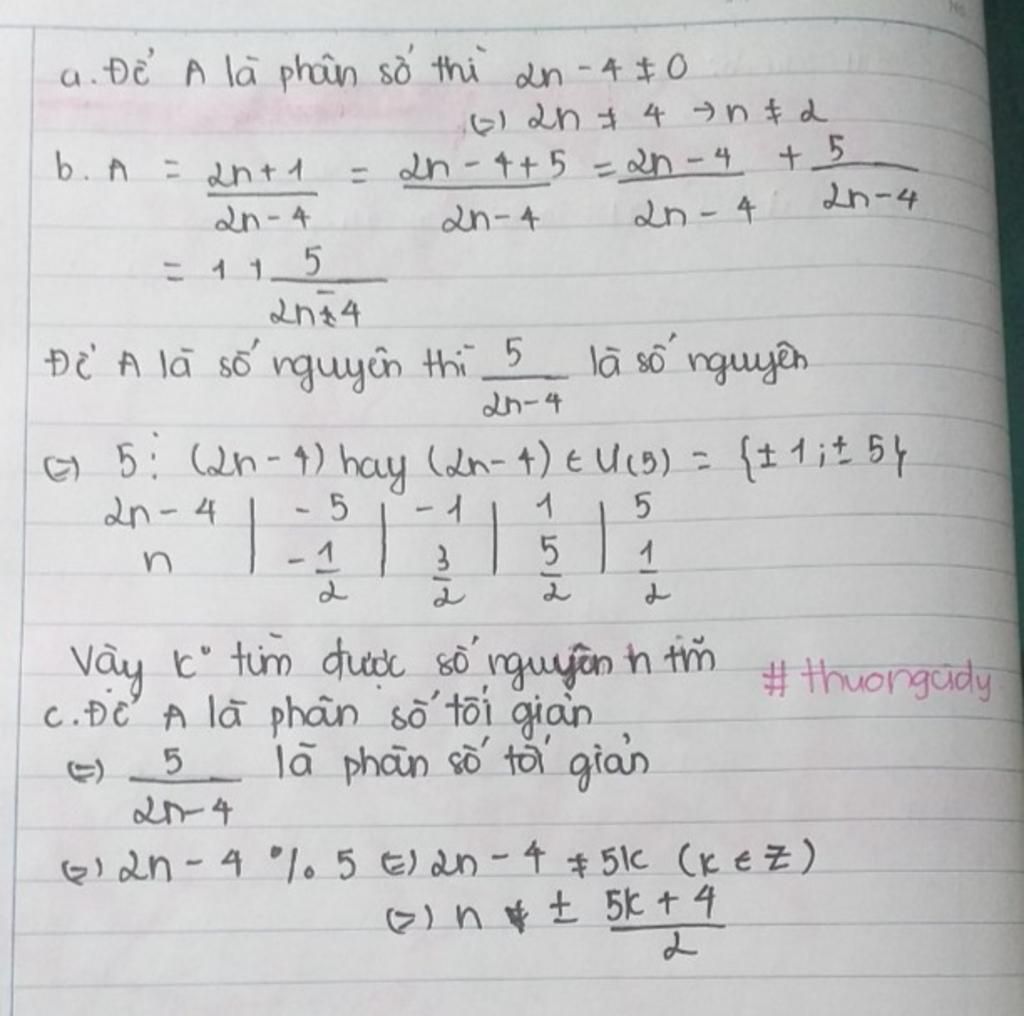 a. Để A là phân số thì 2n - 4 ≠ 0
(=) 2n ≠ 4 → n ≠ 2
b. A = \frac{2n+1}{2n-4} = \frac{2n-4+5}{2n-4} = \frac{2n-4}{2n-4} + \frac{5}{2n-4}
= 1 + \frac{5}{2n-4}
Để A là số nguyên thì \frac{5}{2n-4} là số nguyên
(=) 5 ⋮ (2n-4) hay (2n-4) ∈ U(5) = {±1; ±5}
2n - 4 | -5 | -1 | 1 | 5
n | -\frac{1}{2} | \frac{3}{2} | \frac{5}{2} | \frac{1}{2}
Vậy k° tìm được số nguyên n tm
#thuongcidy
c. Để A là phân số tối giản
(=) \frac{5}{2n-4} là phân số tối giản
(=) 2n - 4 % 5 (=) 2n - 4 ≠ 5k (k ∈ Z)
(=) n ≠ ± \frac{5k+4}{2}